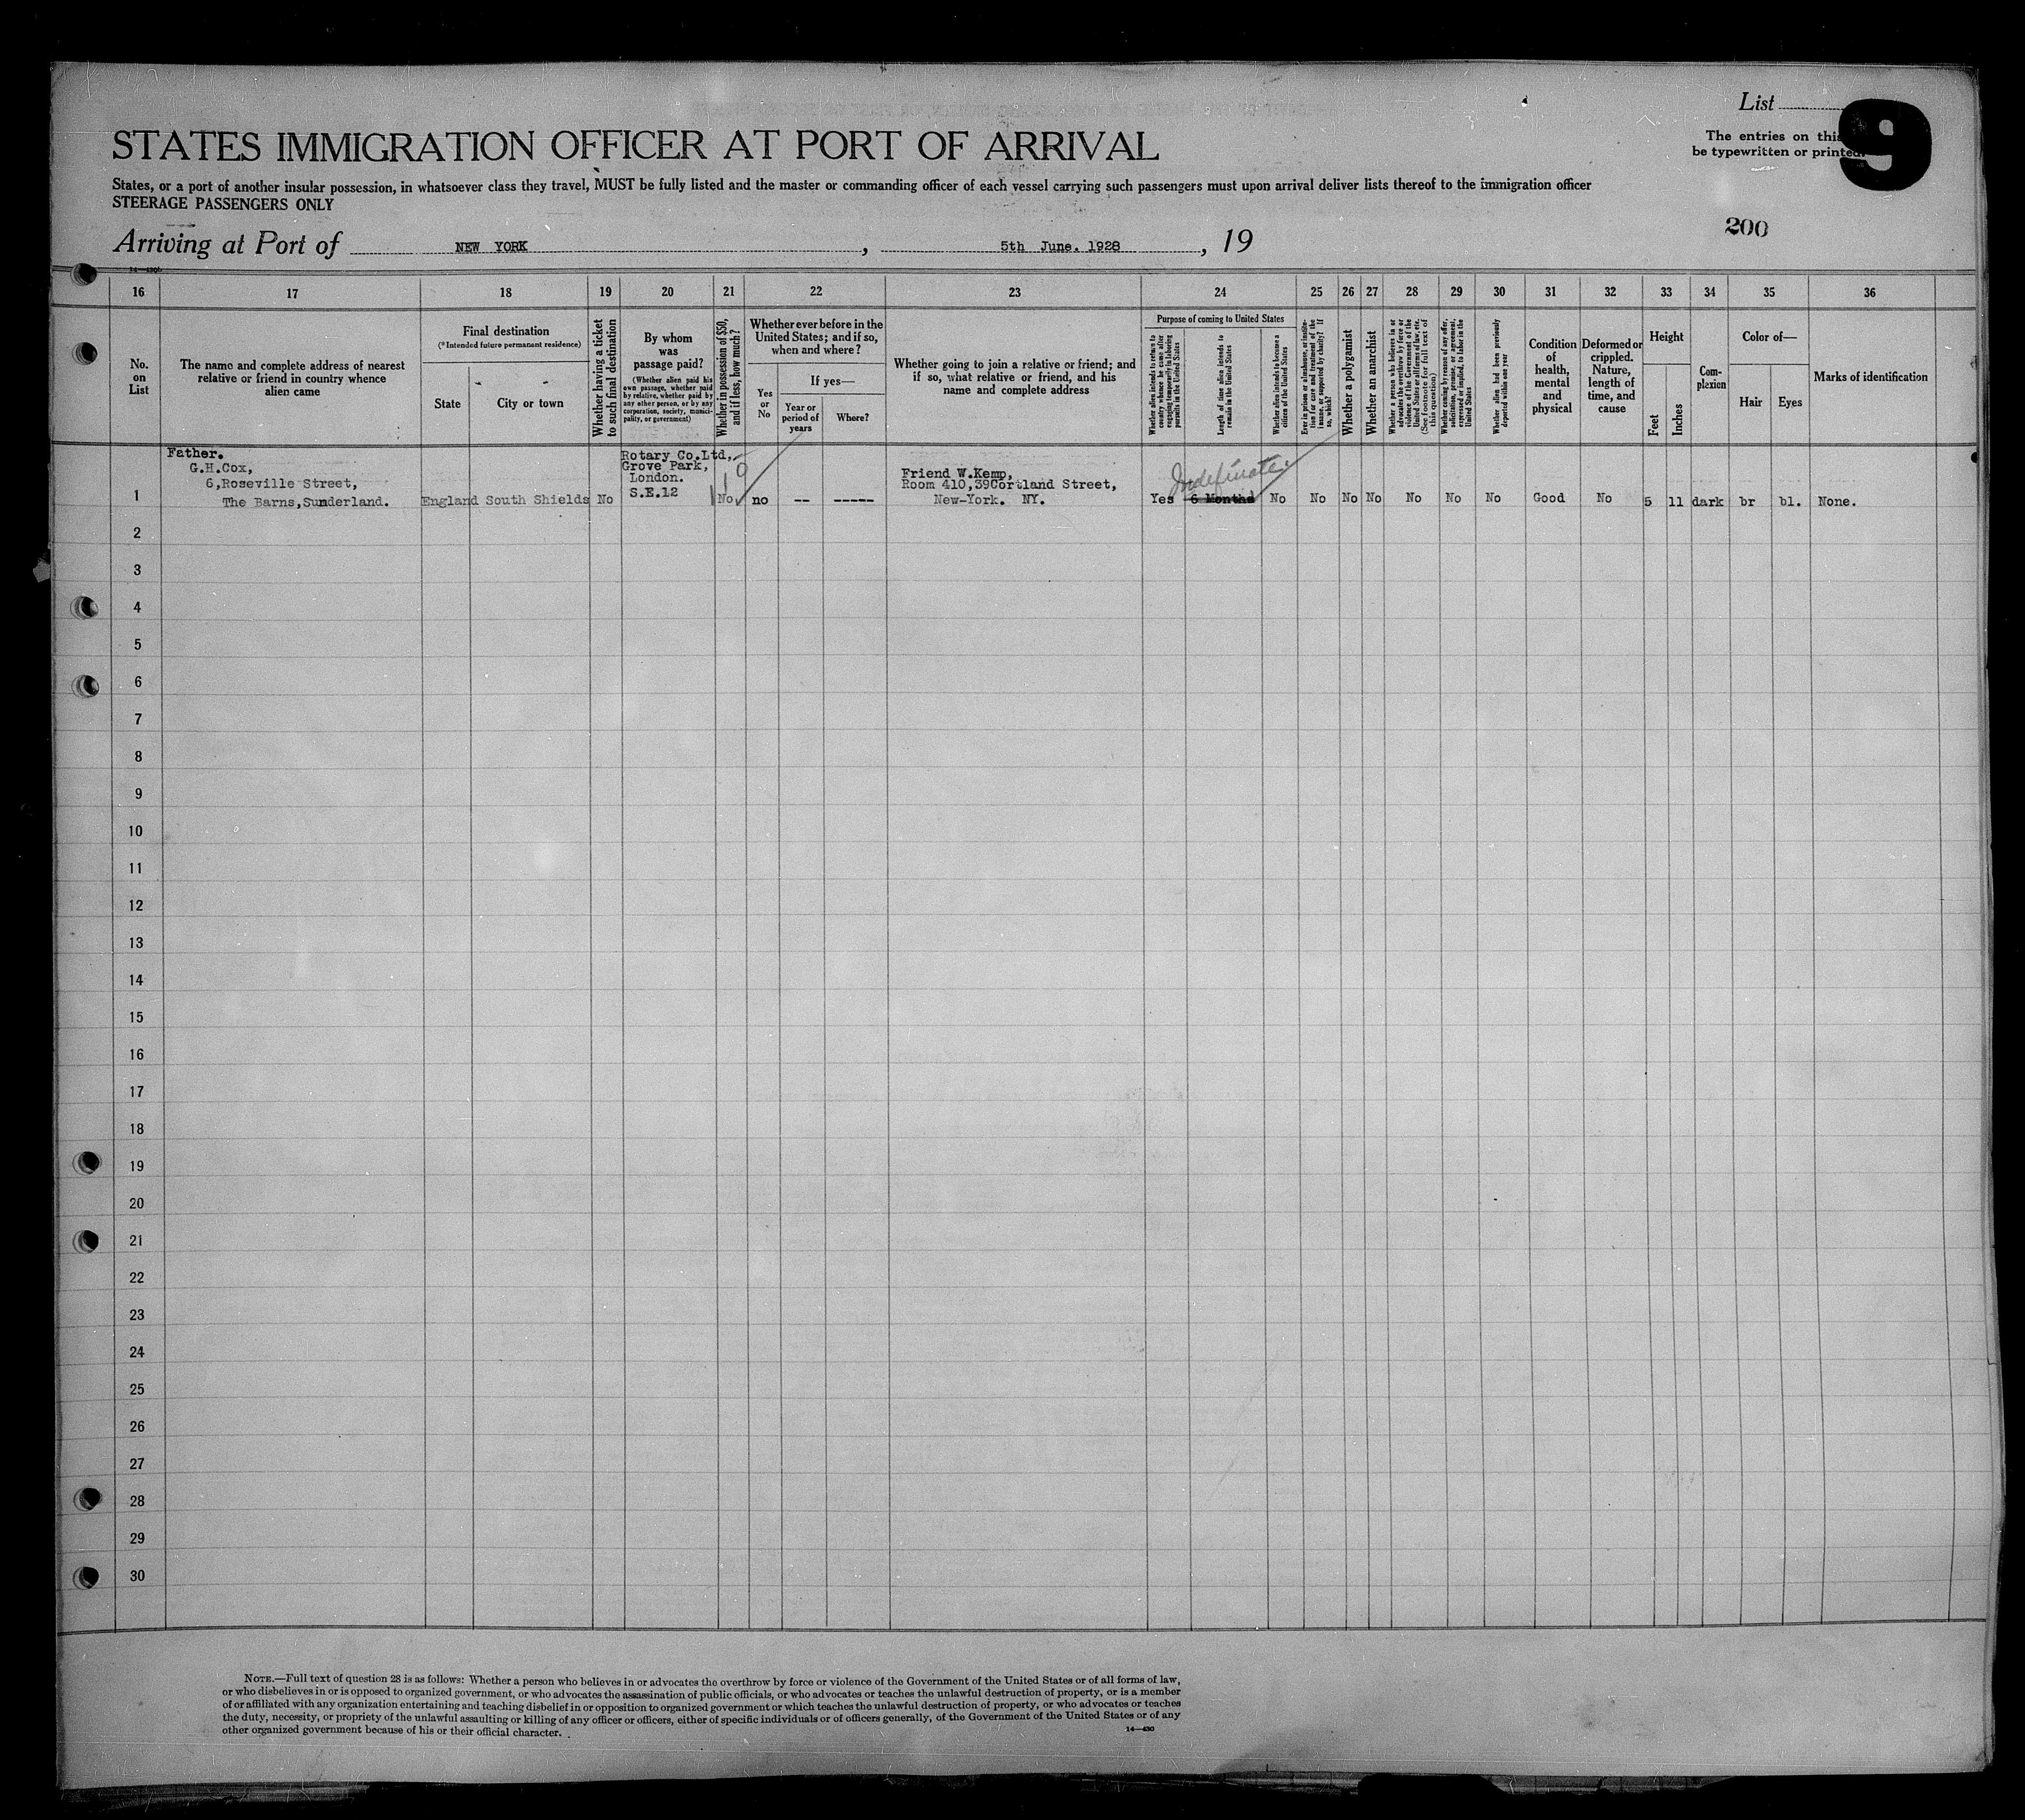 List
9
The entries on this
be typewritten or printed.
STATES IMMIGRATION OFFICER AT PORT OF ARRIVAL
States, or a port of another insular possession, in whatsoever class they travel, MUST be fully listed and the master or commanding officer of each vessel carrying such passengers must upon arrival deliver lists thereof to the immigration officer
STEERAGE PASSENGERS ONLY
200
Arriving at Port of NEW YORK, 5th June. 1928, 19
16 17 18 19 20 21 22 23 24 25 26 27 28 29 30 31 32 33 34 35 36
No.
on
List
The name and complete address of nearest
relative or friend in country whence
alien came
Final destination
(*Intended future permanent residence)
State
City or town
Whether having a ticket
to such final destination
By whom
was
passage paid?
(Whether alien paid his
own passage, whether paid
by relative, whether paid by
any other person, or by any
corporation, society, munici-
pality, or government)
Whether in possession of $50,
and if less, how much?
Whether ever before in the
United States; and if so,
when and where?
Yes
or
No
If yes—
Year or
period of
years
Where?
Whether going to join a relative or friend; and
if so, what relative or friend, and his
name and complete address
Purpose of coming to United States
Whether alien intends to return to
country whence he came after
engaging temporarily in laboring
pursuits in the United States
Length of time alien intends to
remain in the United States
Whether alien intends to become a
citizen of the United States
Ever in prison or almshouse, or institu-
tion for care and treatment of the
insane, or supported by charity? If
so, which?
Whether a polygamist
Whether an anarchist
Whether a person who believes in or
advocates the overthrow by force or
violence of the Government of the
United States or all forms of law, etc.
(See footnote for full text of
this question)
Whether coming by reason of any offer,
solicitation, promise, or agreement,
expressed or implied, to labor in the
United States
Whether alien had been previously
deported within one year
Condition
of
health,
mental
and
physical
Deformed or
crippled.
Nature,
length of
time, and
cause
Height
Feet
Inches
Com-
plexion
Color of—
Hair
Eyes
Marks of identification
Father.
G.H.Cox,
6,Roseville Street,
The Barns,Sunderland.
England South Shields No
Rotary Co.Ltd,
Grove Park,
London.
S.E.12
No
no -- -----
Friend W.Kemp,
Room 410,39Cortland Street,
New-York. NY.
Indefinate
Yes 6 Months No No No No No No No Good No 5 11 dark br bl. None.
1
2
3
4
5
6
7
8
9
10
11
12
13
14
15
16
17
18
19
20
21
22
23
24
25
26
27
28
29
30
NOTE.—Full text of question 28 is as follows: Whether a person who believes in or advocates the overthrow by force or violence of the Government of the United States or of all forms of law,
or who disbelieves in or is opposed to organized government, or who advocates the assassination of public officials, or who advocates or teaches the unlawful destruction of property, or is a member
of or affiliated with any organization entertaining and teaching disbelief in or opposition to organized government or which teaches the unlawful destruction of property, or who advocates or teaches
the duty, necessity, or propriety of the unlawful assaulting or killing of any officer or officers, either of specific individuals or of officers generally, of the Government of the United States or of any
other organized government because of his or their official character.
14—430